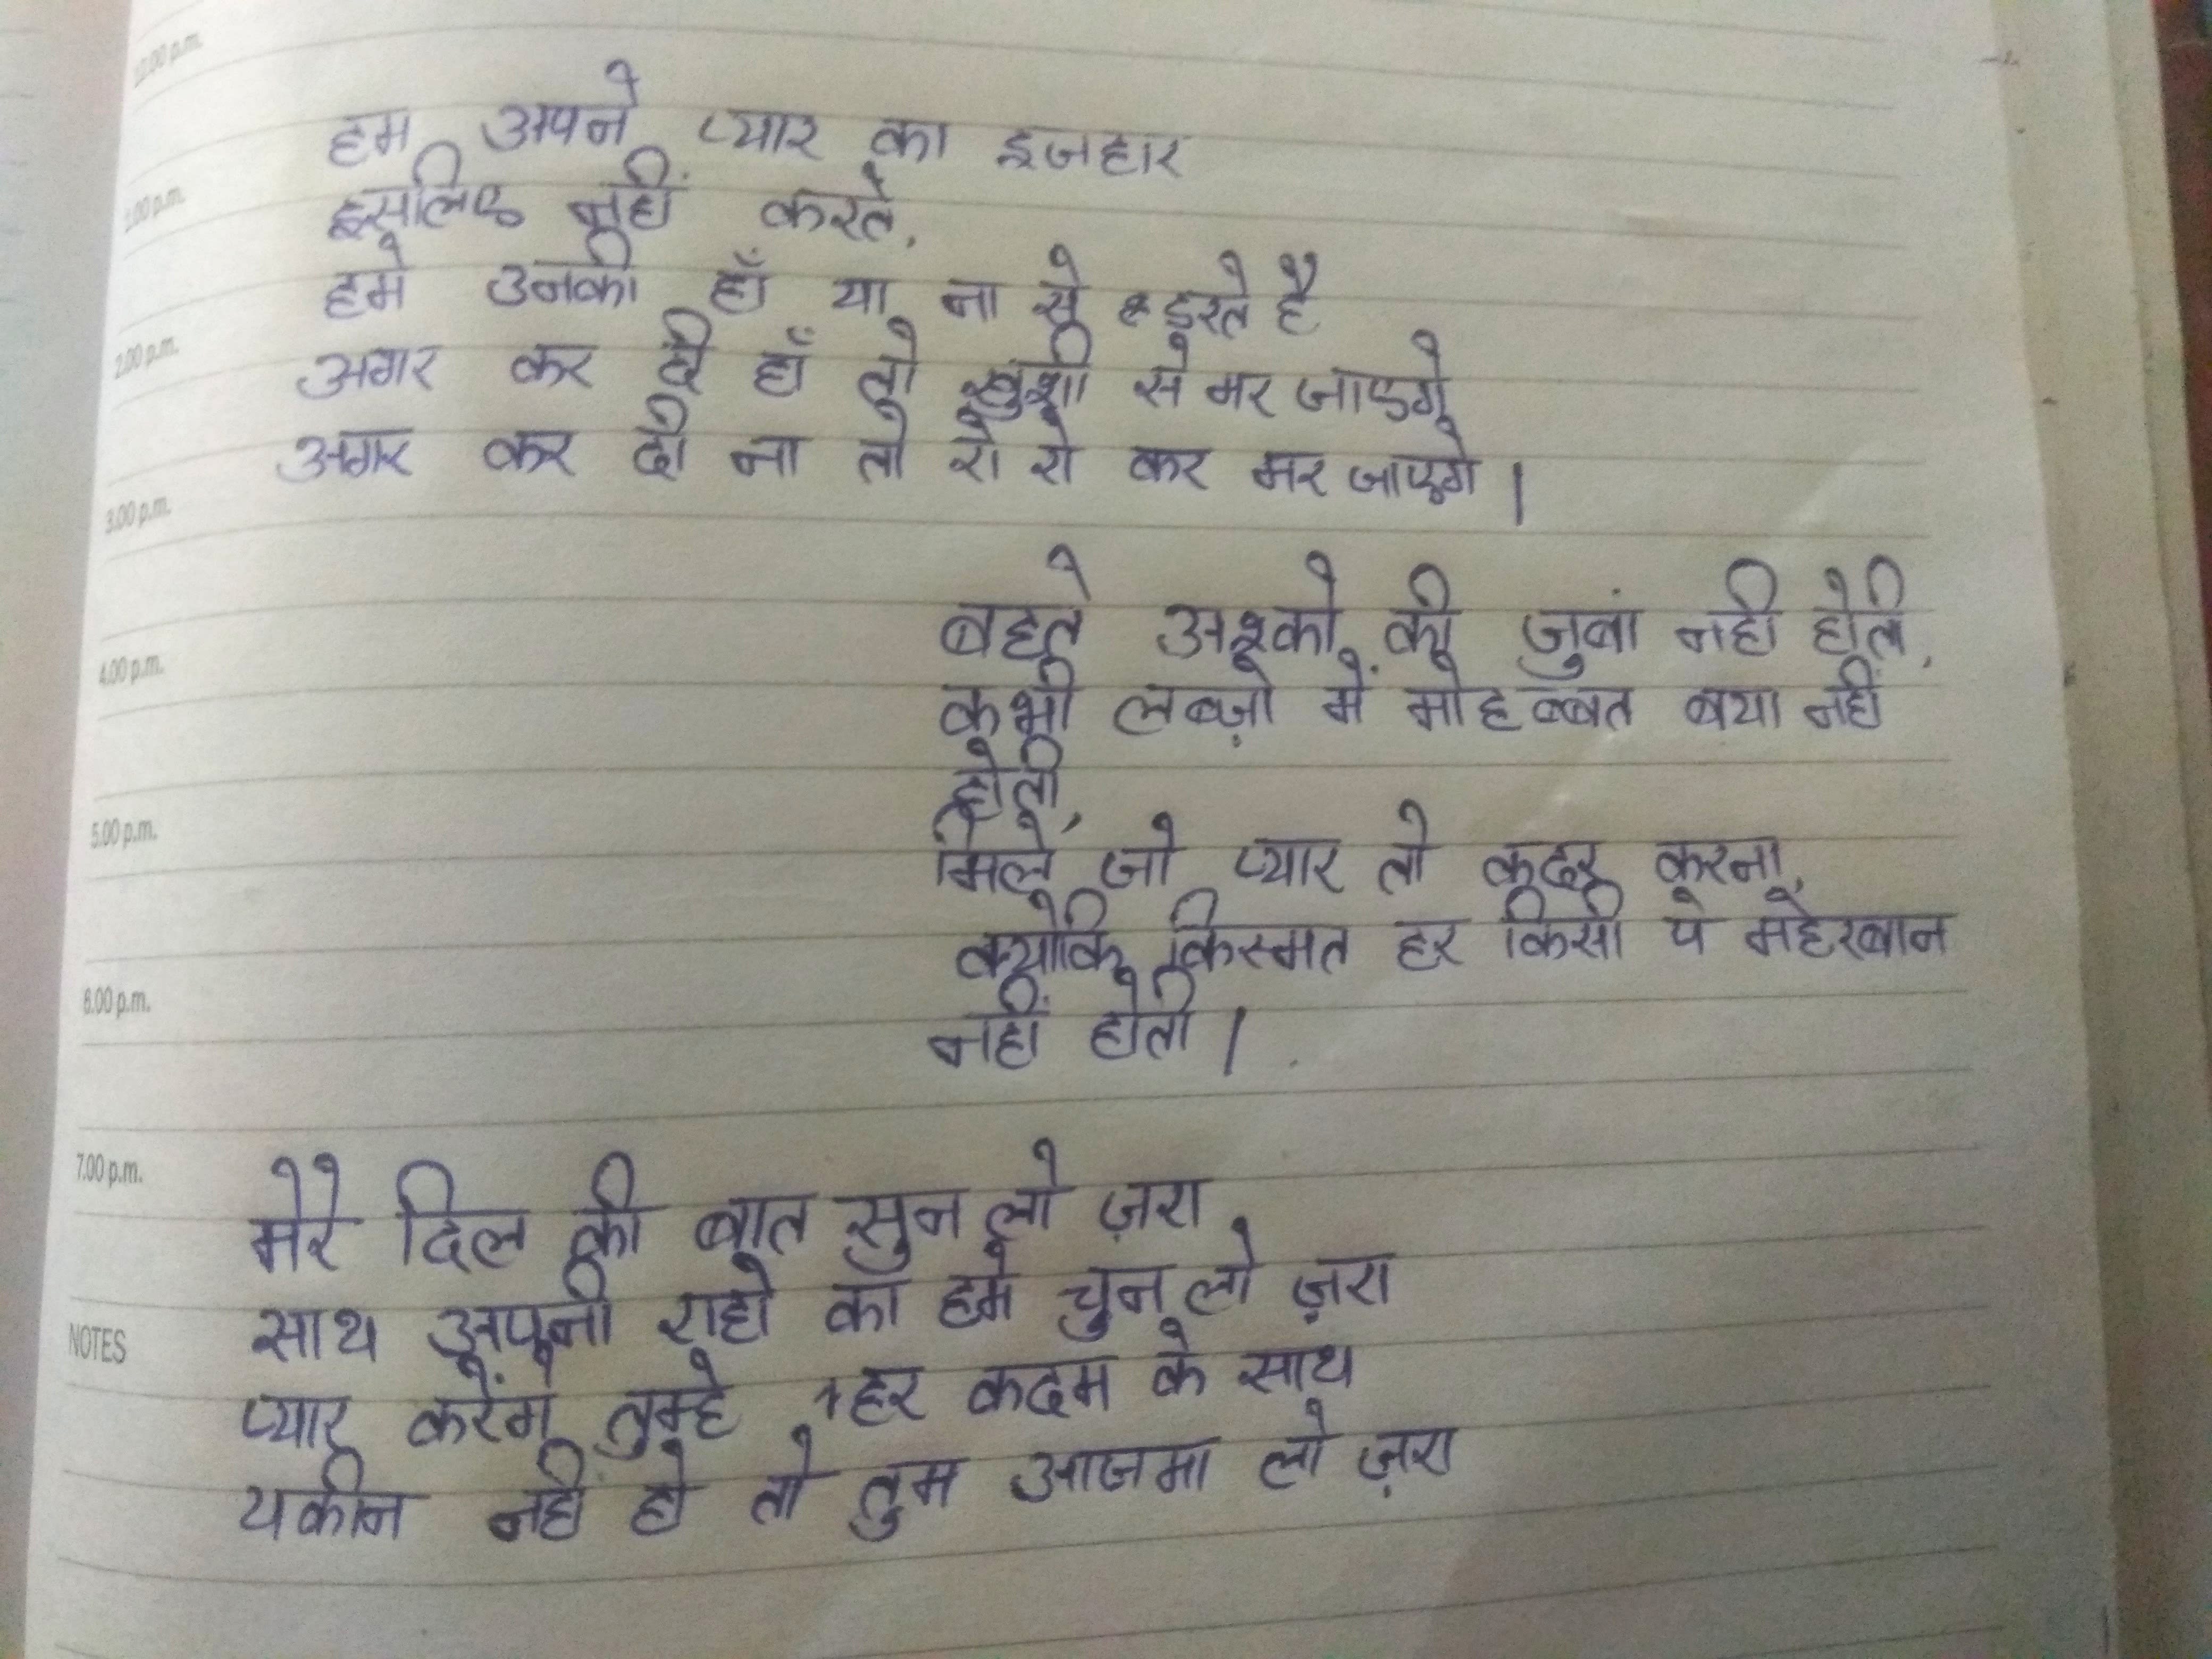 12.00 p.m.
हम अपने प्यार का इजहार
1.00 p.m.
इसलिए नहीं करते,
हमे उनकी हाँ या ना से डरते है
2.00 p.m.
अगर कर दी हाँ तो खुशी से मर जाएगे
अगर कर दी ना तो रो रो कर मर जाएगे |
3.00 p.m.
बहते अश्को की जुबां नही होती,
4.00 p.m.
कभी लब्ज़ो में मोहब्बत बया नहीं
होती,
5.00 p.m.
मिले जो प्यार तो कदर करना,
क्योकि किस्मत हर किसी पे महेरबान
6.00 p.m.
नहीं होती |
7.00 p.m.
मेरे दिल की बात सुन लो ज़रा
साथ अपनी राहो का हमे चुन लो ज़रा
NOTES
प्यार करेंगे तुम्हे हर कदम के साथ
यकीन नही हो तो तुम आजमा लो ज़रा